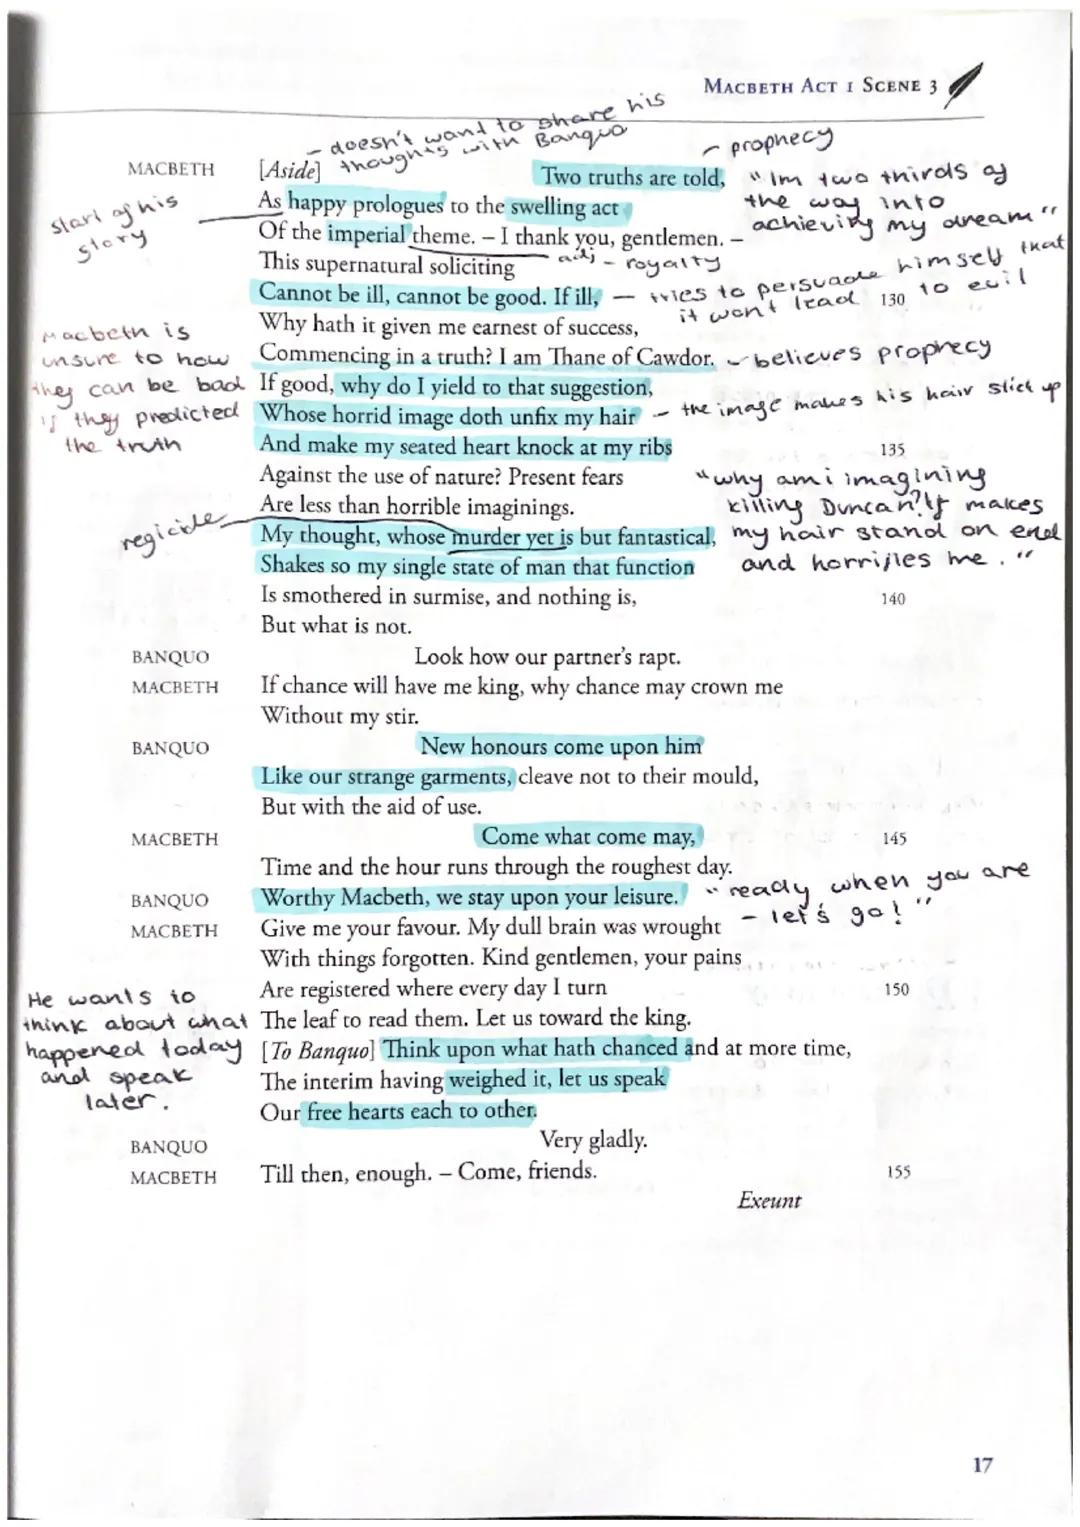 MACBETH ACT 1 SCENE 3
- doesn't want to share his
thoughts with Banquo
- prophecy
MACBETH [Aside] Two truths are told, "Im two thirds of
the way into
achieving my dream"
start of his
story
As happy prologues to the swelling act
Of the imperial theme. – I thank you, gentlemen. –
adj - royalty
This supernatural soliciting
Cannot be ill, cannot be good. If ill, — tries to persuade himself that
it wont lead to evil
130
Why hath it given me earnest of success,
Commencing in a truth? I am Thane of Cawdor. - believes prophecy
Macbeth is
unsure to how
they can be bad
if they predicted
the truth
If good, why do I yield to that suggestion,
Whose horrid image doth unfix my hair - the image makes his hair stick up
And make my seated heart knock at my ribs 135
Against the use of nature? Present fears
Are less than horrible imaginings.
"why am i imagining
killing Duncan? If makes
my hair stand on end
and horrifies me."
regicide
My thought, whose murder yet is but fantastical,
Shakes so my single state of man that function
Is smothered in surmise, and nothing is, 140
But what is not.
BANQUO Look how our partner's rapt.
MACBETH If chance will have me king, why chance may crown me
Without my stir.
BANQUO New honours come upon him
Like our strange garments, cleave not to their mould,
But with the aid of use.
MACBETH Come what come may, 145
Time and the hour runs through the roughest day.
BANQUO Worthy Macbeth, we stay upon your leisure. "ready when you are
- let's go!"
MACBETH Give me your favour. My dull brain was wrought
With things forgotten. Kind gentlemen, your pains
Are registered where every day I turn 150
The leaf to read them. Let us toward the king.
He wants to
think about what
happened today
and speak
later.
[To Banquo] Think upon what hath chanced and at more time,
The interim having weighed it, let us speak
Our free hearts each to other.
BANQUO Very gladly.
MACBETH Till then, enough. – Come, friends. 155
Exeunt
17